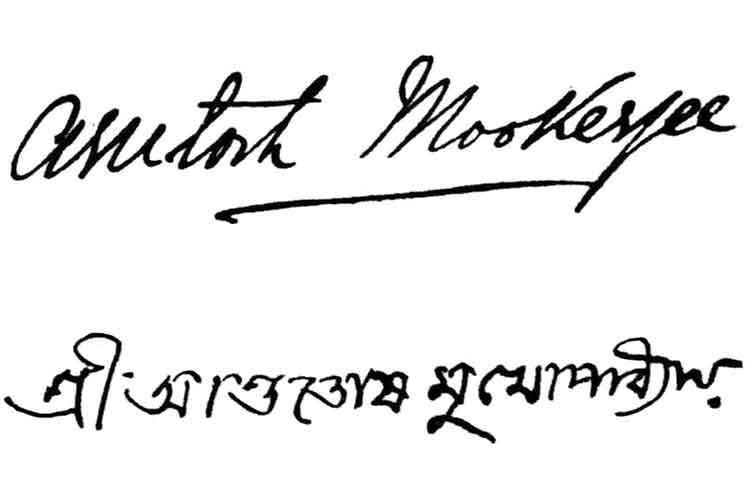 Asutosh Mookerjee
শ্রী আশুতোষ মুখোপাধ্যায়